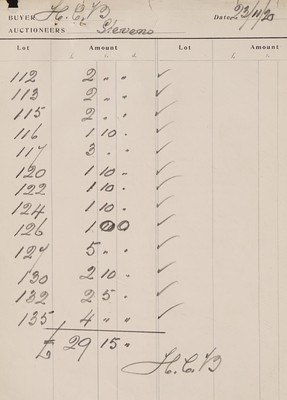 BUYER H.C.B Date 23/11/20
AUCTIONEERS Stevens
Lot Amount Lot Amount
£ s. d. £ s. d.
112 2 " " ✓
113 2 " " ✓
115 2 " " ✓
116 1 10 " ✓
117 3 " " ✓
120 1 10 " ✓
122 1 10 " ✓
124 1 10 " ✓
126 1 0 0 ✓
127 5 " " ✓
130 2 10 " ✓
132 2 5 " ✓
135 4 " " ✓
£ 29 15 "
H.C.B